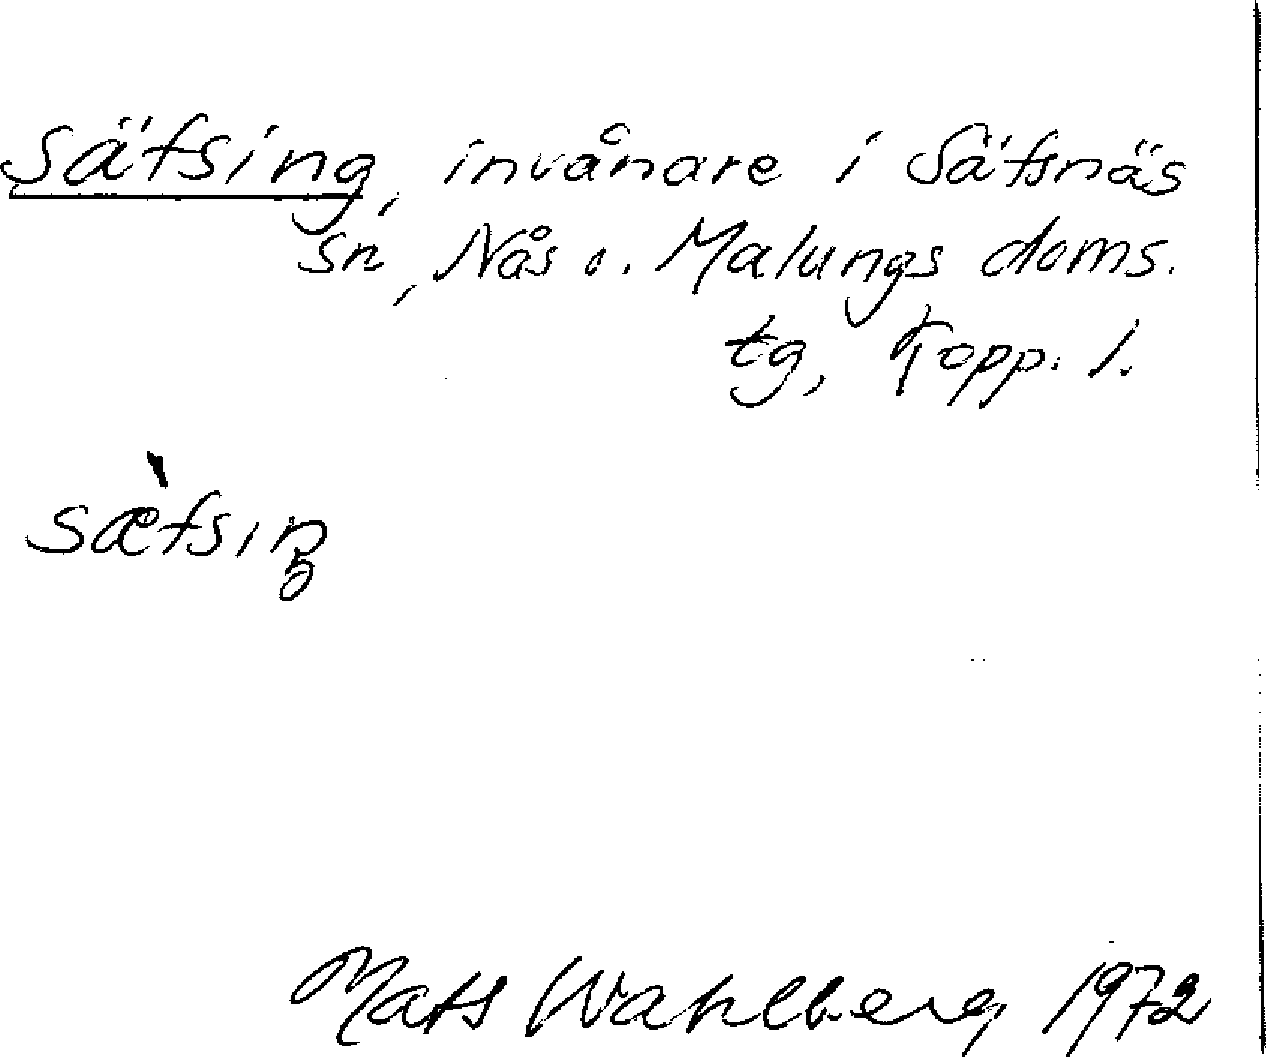 säfsing, invånare i Säfsnäs
sn, Nås o. Malungs doms.
tg, Kopp. l.
sæ̀fsıŋ
Mats Wahlberg 1972